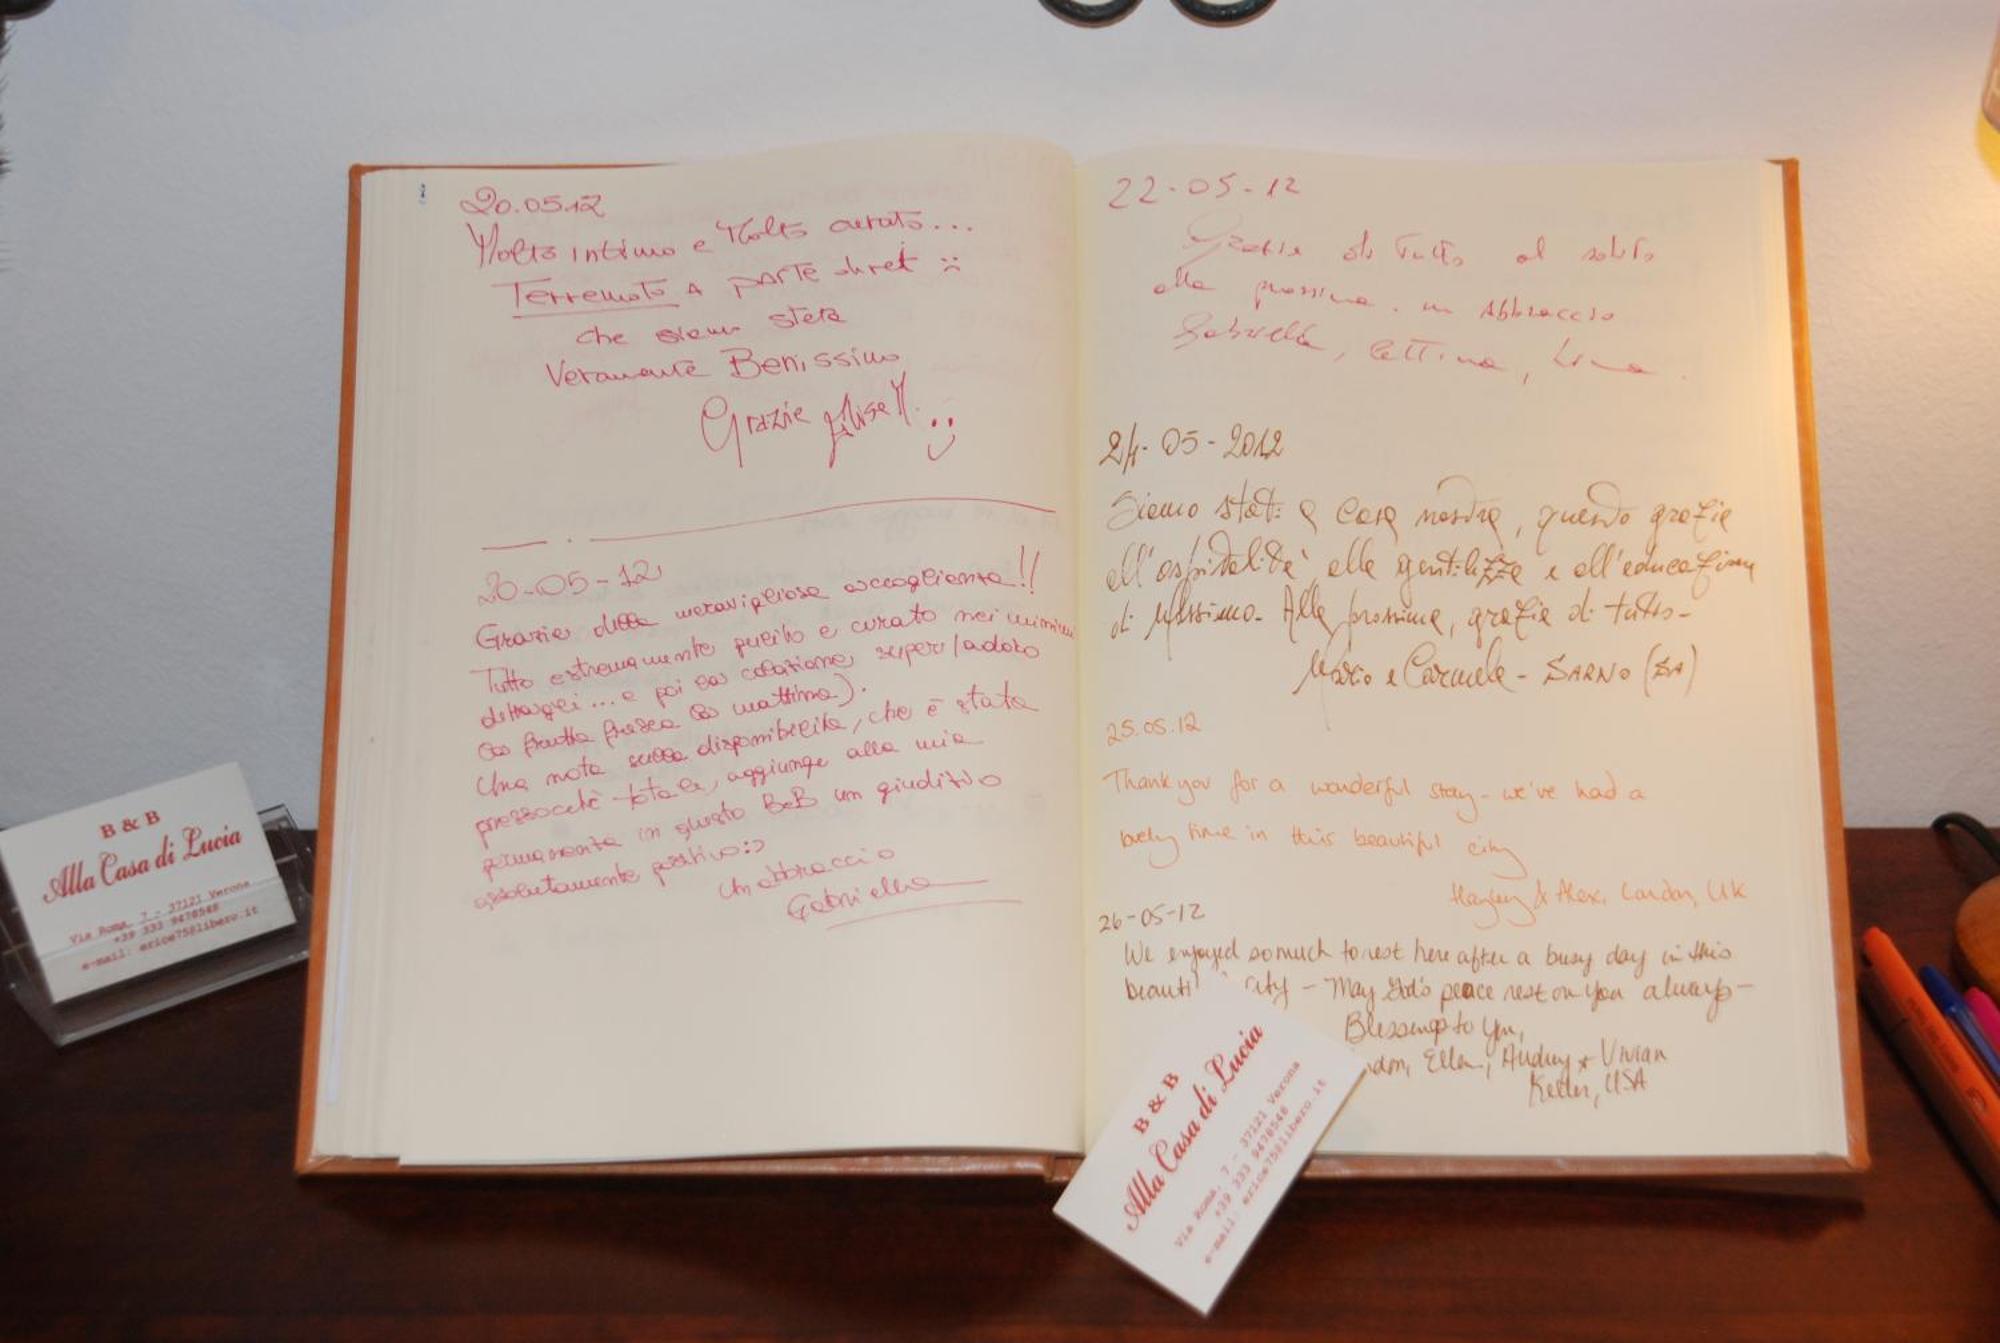 20.05.12
Molto intimo e Molto curato...
Terremoto A parte
che siamo state
Veramente Benissimo
Grazie
20-05-12
Grazie della meravigliosa accoglienza!!
Tutto estremamente pulito e curato nei minimi
dettagli... e poi la colazione super (adoro
la frutta fresca la mattina).
Una nota sulla disponibilità, che è stata
pressoché totale, aggiunge alla mia
permanenza in questo B&B un giudizio
assolutamente positivo :)
Un abbraccio
Gabriella
22-05-12
Grazie di tutto al solito
alla prossima. un Abbraccio
Gabriella, Lettina, Lina
24-05-2012
Siamo stati a casa nostra, questo grazie
all'ospitalità alla gentilezza e all'educazione
di Massimo. Alla prossima, grazie di tutto-
Mario e Carmela - SARNO (SA)
25.05.12
Thank you for a wonderful stay - we've had a
lovely time in this beautiful city
& Alex, London, UK
26-05-12
We enjoyed so much to rest here after a busy day in this
beauti city - May God's peace rest on you always-
Blessings to you,
Ellen, Audrey & Vivian
Keller, USA
B & B
Alla Casa di Lucia
Via Roma, 7 - 37121 Verona
+39 333 9478548
e-mail: erice75@libero.it
B & B
Alla Casa di Lucia
Via Roma, 7 - 37121 Verona
+39 333 9478548
e-mail: erice75@libero.it